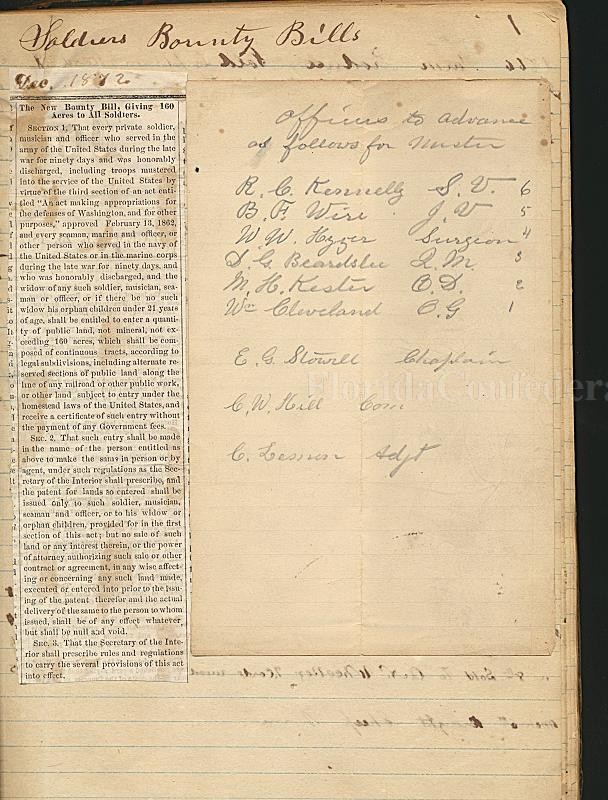 1
Soldiers Bounty Bills
Dec. 1872
The New Bounty Bill, Giving 160
Acres to All Soldiers.
SECTION 1. That every private soldier,
musician and officer who served in the
army of the United States during the late
war for ninety days and was honorably
discharged, including troops mustered
into the service of the United States by
virtue of the third section of an act enti-
tled "An act making appropriations for
the defenses of Washington, and for other
purposes," approved February 13, 1862,
and every seaman, marine and officer, or
other person who served in the navy of
the United States or in the marine corps
during the late war for ninety days, and
who was honorably discharged, and the
widow of any such soldier, musician, sea-
man or officer, or if there be no such
widow his orphan children under 21 years
of age, shall be entitled to enter a quanti-
ty of public land, not mineral, not ex-
ceeding 160 acres, which shall be com-
posed of continuous tracts, according to
legal subdivisions, including alternate re-
served sections of public land along the
line of any railroad or other public work,
or other land subject to entry under the
homestead laws of the United States, and
receive a certificate of such entry without
the payment of any Government fees.
SEC. 2. That such entry shall be made
in the name of the person entitled as
above to make the same in person or by
agent, under such regulations as the Sec-
retary of the Interior shall prescribe, and
the patent for lands so entered shall be
issued only to such soldier, musician,
seaman and officer, or to his widow or
orphan children, provided for in the first
section of this act; but no sale of such
land or any interest therein, or the power
of attorney authorizing such sale or other
contract or agreement, in any wise affect-
ing or concerning any such land made,
executed or entered into prior to the issu-
ing of the patent therefor and the actual
delivery of the same to the person to whom
issued, shall be of any effect whatever,
but shall be null and void.
SEC. 3. That the Secretary of the Inte-
rior shall prescribe rules and regulations
to carry the several provisions of this act
into effect.
Officers to advance
as follows for Muster
R. C. Kennelly S. V. 6
B. F. Wire J. V 5
W. W. Hyzer Surgeon 4
D. G. Beardslee Q. M. 3
M. H. Kester O. D. 2
Wm Cleveland O. G 1
E. G. Stowell Chaplain
C. W. Hill Com
C. Lemon Adjt
FloridaConfedera